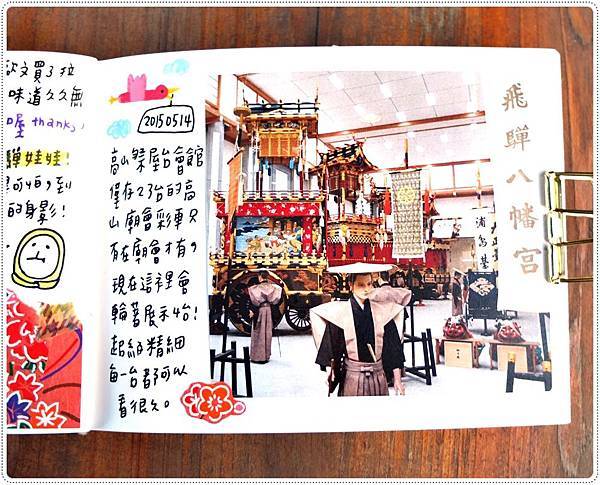 文買了拉
味道久久無
喔 thanks,
娃娃!
可怕,到
的身影!
20150514
高山祭屋台會館
僅存23台的高
山廟會彩車只
有在廟會才有,
現在這裡會
輪著展示4台!
超級精細
每一台都可以
看很久。
飛驒八幡宮